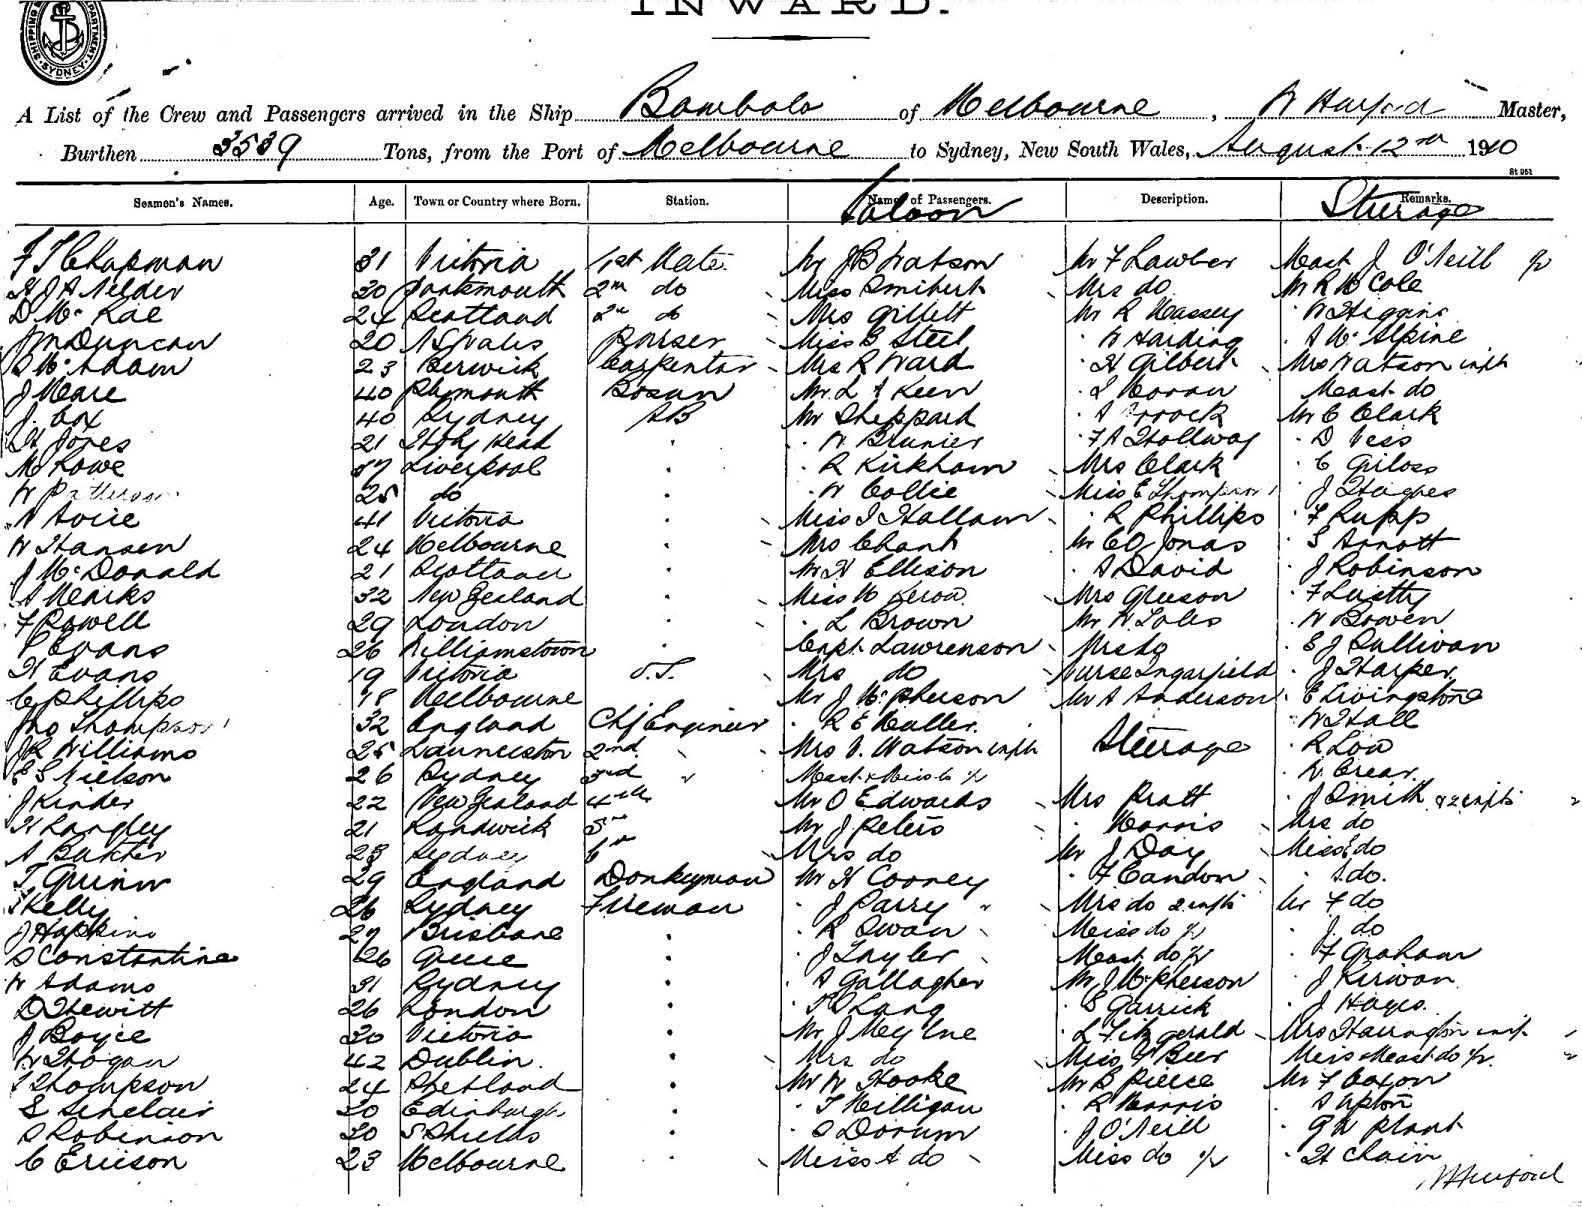 INWARD.
SHIPPING DEPARTMENT SYDNEY
A List of the Crew and Passengers arrived in the Ship Bombala of Melbourne, W Hurford Master,
Burthen 3539 Tons, from the Port of Melbourne to Sydney, New South Wales, August 12th 1910
St 951
Seamen's Names. Age. Town or Country where Born. Station. Names of Passengers. Saloon Description. Remarks. Steerage
F T Chapman 31 Victoria 1st Mate Mr J B Watson Mr F Lawber Mast J O'Neill
H J A Nelder 30 Portsmouth 2nd do Miss Smibert Mrs do Mr R W Cole
D McRae 24 Scotland do Mrs Gillett Mr R Massey W Higgins
Duncan 20 N S Wales Purser Miss B Steel W Harding A McAlpine
McAdam 23 Berwick Carpenter Mrs R Ward H Gilbert Mrs Watson infts
J Meare 40 Plymouth Bosun Mr L A Keen L Horan Mast do
J Cox 40 Sydney AB Mr Sheppard Mr C Clark
H Jones 21 Holy Head W Brunier F A Hollway D Ness
M Lowe 37 Liverpool R Kirkham Mrs Clark C Giloss
W Patterson 25 do W Collie Miss E Thompson J Hughes
41 Victoria Miss I Hallam R Phillips F Rupp
W Hansen 24 Melbourne Mrs Chant Mr C O Jonas S Arnott
J McDonald 21 Scotland Mr H Ellison A David J Robinson
A Mearks 32 New Zealand Miss Mrs Gleeson F Lustty
F Powell 29 London L Brown Mr W Toles W Bowen
Evans 26 Williamstown Capt. Lawrenson Mrs do E J Sullivan
H Evans 19 Victoria O.S. Mrs do Nurse Ingarfield J Harper
C Phillips 18 Melbourne Mr J McPherson Mr A Anderson E Livingstone
Jno Thompson 32 England Chf Engineer R E Muller W Hall
J R Williams 25 Launceston 2nd Mrs V. Watson infts Steerage R Low
E S Nielson 26 Sydney 3rd Mast & Miss do W Crear
J Kinder 22 New Zealand 4th Mr O Edwards Mrs Pratt J Smith & 2 infts
H Langley 21 Randwick 5th Mr J Peters Harris Mrs do
A Baxter 23 Sydney 6th Mrs do Mr J Day Miss do
T Quinn 29 England Donkeyman Mr H Cooney F Candon A do.
T Kelly 26 Sydney Fireman J Parry Mrs do 2 infts Mr F do
J Hopkins 27 Brisbane R Swan Miss do J. do
S Constantine 26 Greece J Tayler Mast do F Graham
W Adams 31 Sydney A Gallagher Mr J McPherson J Kirwan
D Hewitt 26 London T D Lang E Garrick J Hayes.
J Boyce 30 Victoria Mr J Meylne L Fitzgerald Mrs Harrington inft
W Hogan 42 Dublin Mrs do Miss Beer Miss Mast do
T Thompson 24 Shetland Mr W Hooke Mr B Pierce Mr F Coxon
S Sinclair 30 Edinburgh T Milligan R Harris S Upton
S Robinson 30 S Shields S Dorum J O'Neill G W Plant
C Ericson 23 Melbourne Miss A do Miss do H Chain
W Hurford